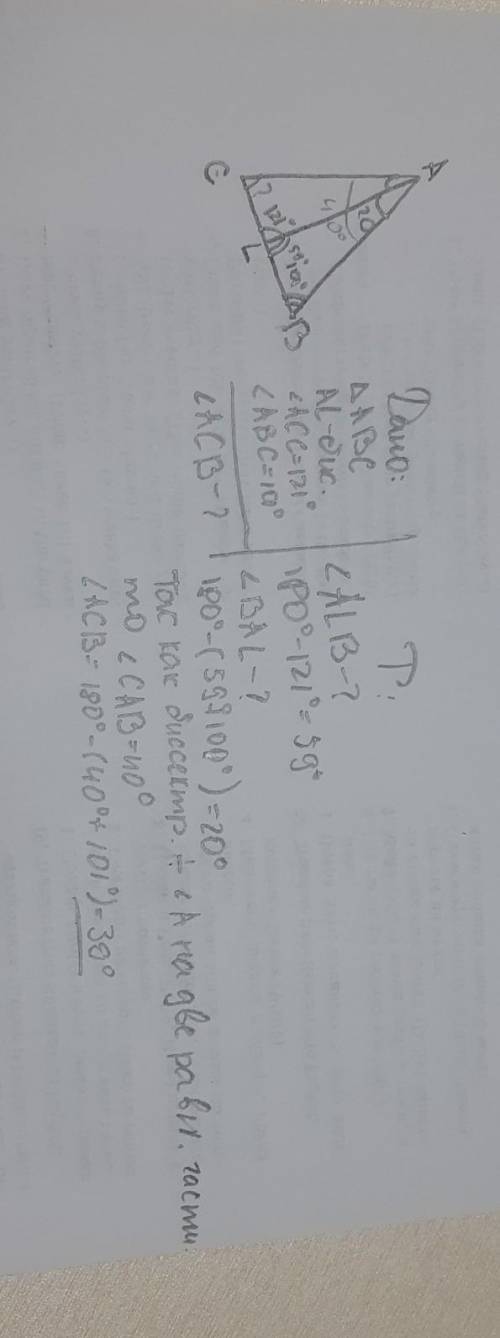 A
20
40°
59°
101°
121°
?
C
L
B
Дано:
△ABC
AL-бис.
∠ACC=121°
∠ABC=101°
∠ACB-?
P:
∠ALB-?
180°-121°=59°
∠BAL-?
180°-(59+100°)=20°
Так как биссектр. ÷ ∠A на две равн. части
то ∠CAB=40°
∠ACB=180°-(40°+101°)=30°